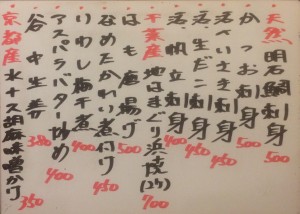 天然 明石鯛刺身 500
かつお刺身 500
活べいさき刺身 450
活生だこ刺身 400
活帆立刺身 400
はも唐揚げ 500
千葉産 地はまぐり浜焼(2ケ) 700
なめたかれい煮付け 450
いわし梅干煮 400
アスパラバター炒め 400
谷中生姜 380
京都産 水ナス胡麻味噌かけ 350